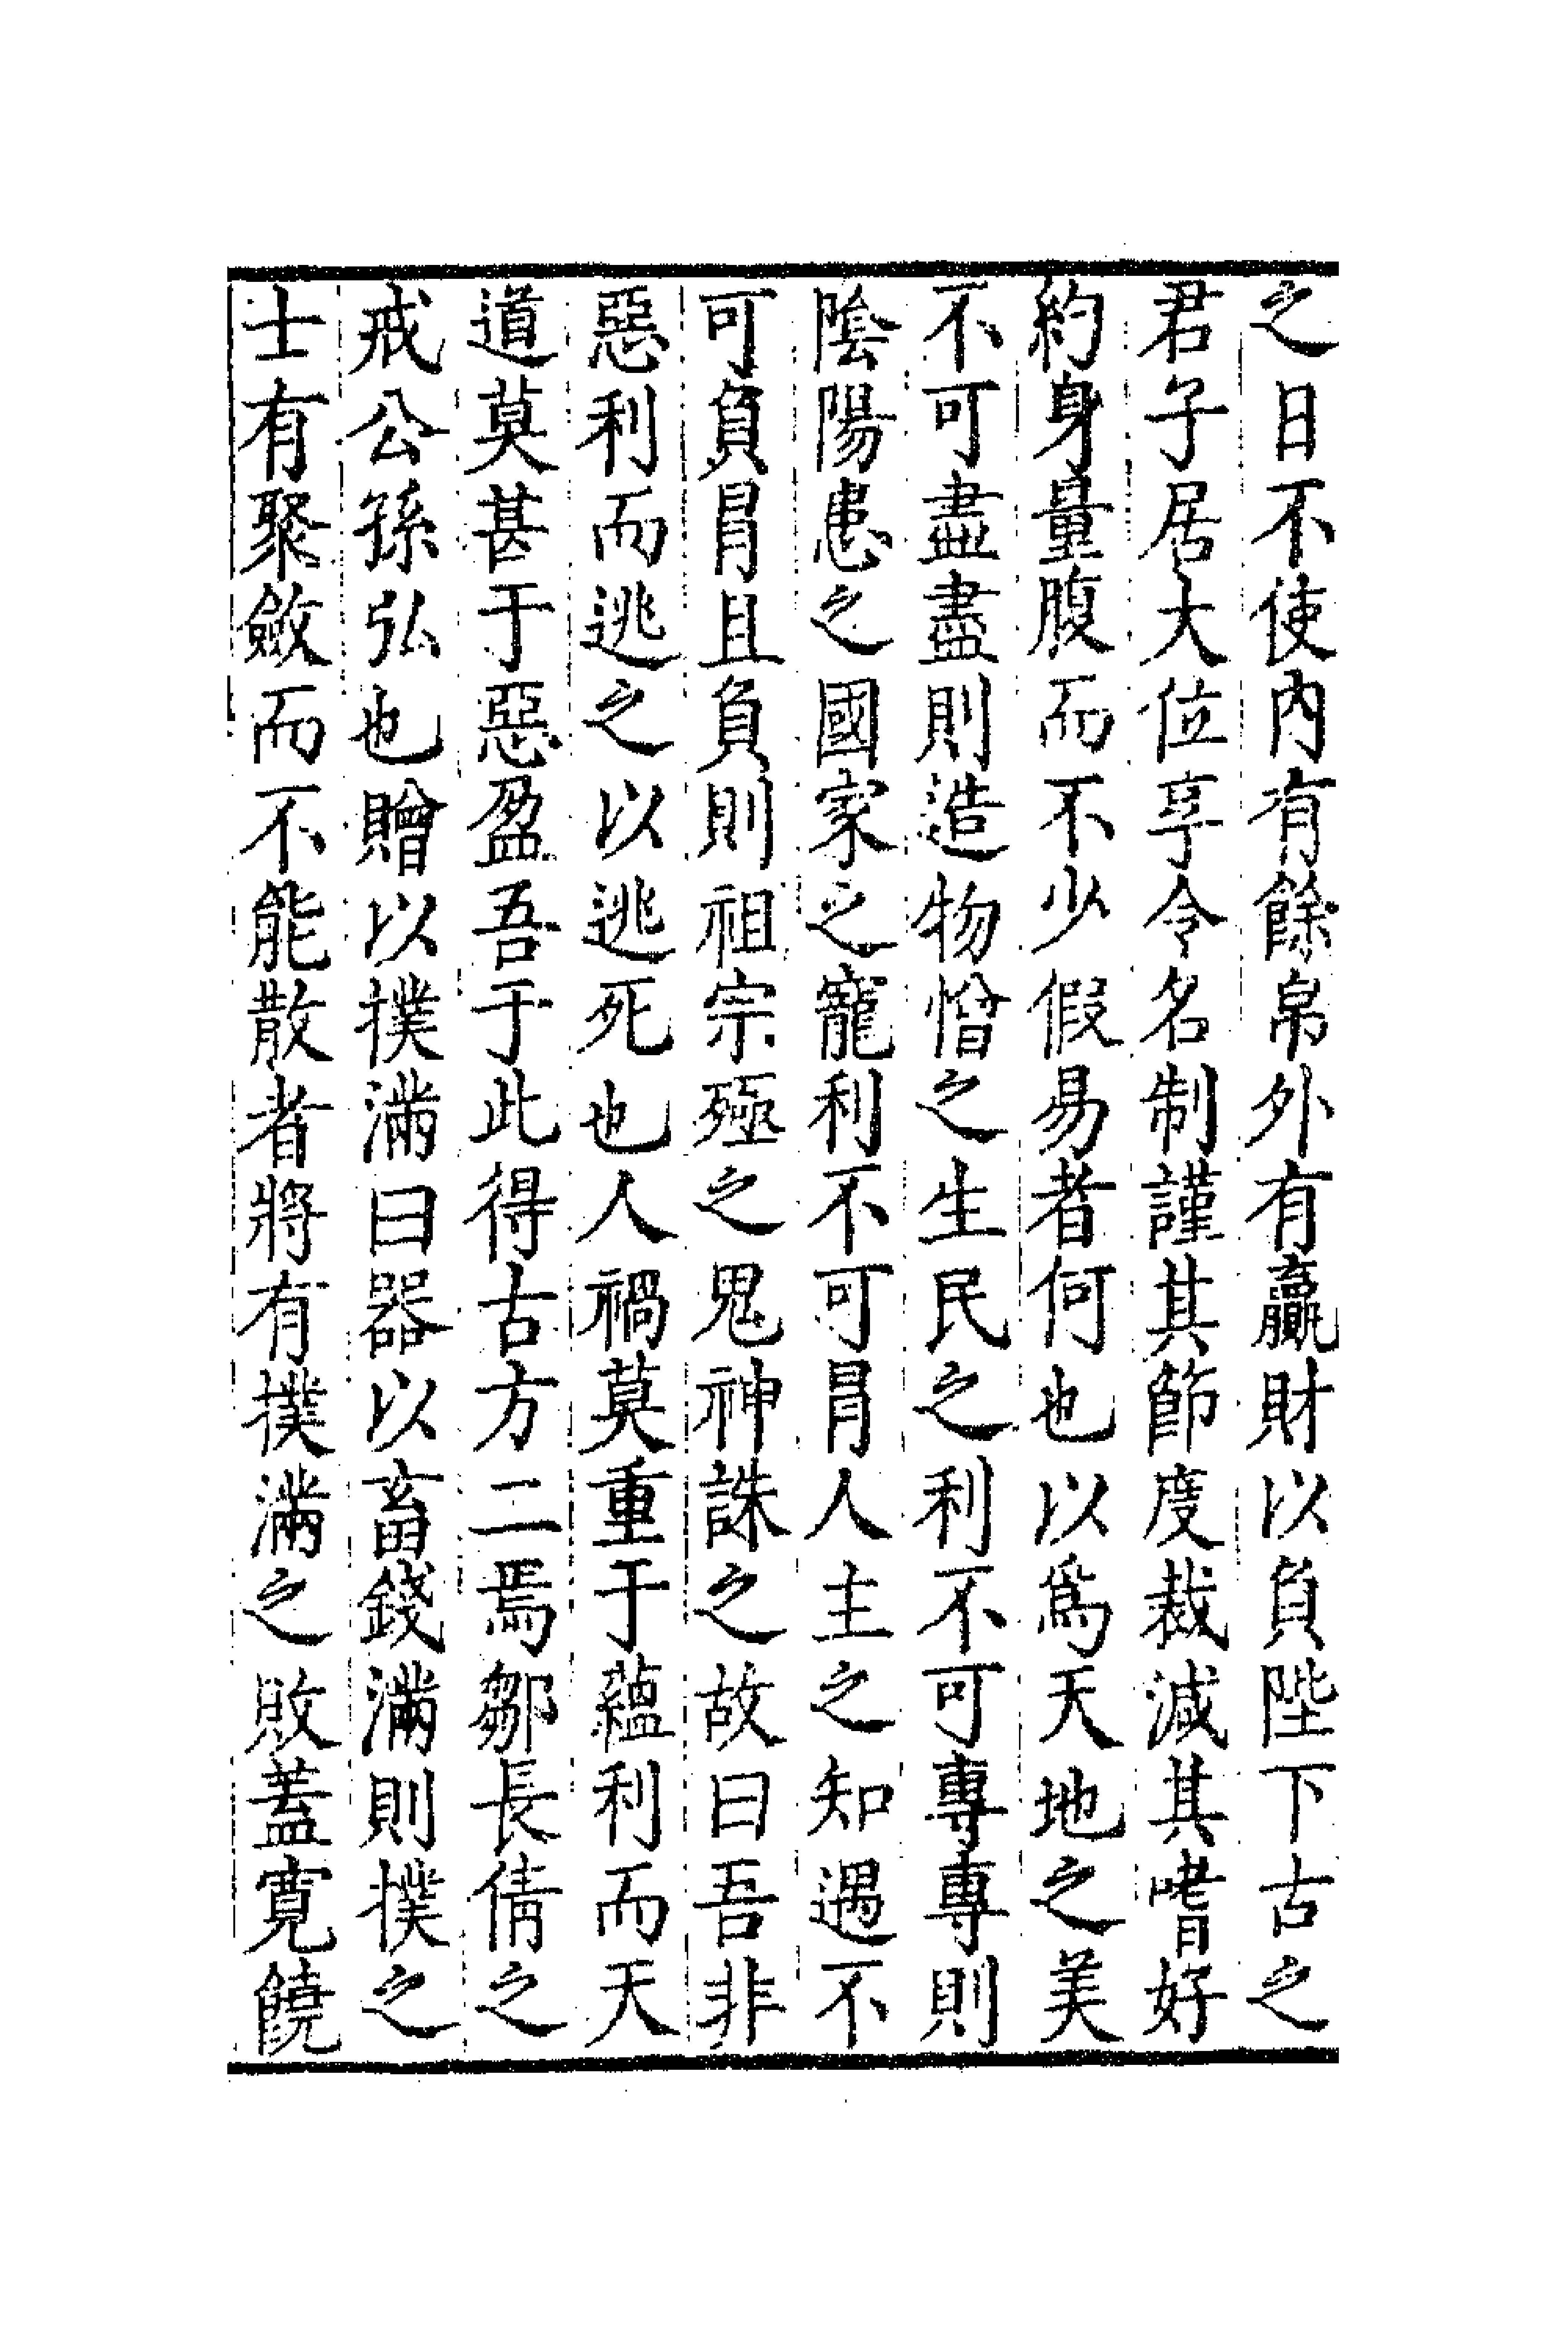 之日不使内有餘帛外有贏財以負陛下古之
君子居大位享令名制謹其節度裁減其嗜好
約身量腹而不少假易者何也以為天地之美
不可盡盡則造物憎之生民之利不可專專則
陰陽患之國家之寵利不可冐人主之知遇不
可負冐且負則祖宗殛之鬼神誅之故曰吾非
惡利而逃之以逃死也人禍莫重于蘊利而天
道莫甚于惡盈吾于此得古方二焉鄒長倩之
戒公孫弘也贈以撲滿曰器以畜錢滿則撲之
士有聚斂而不能散者將有撲滿之敗蓋寛饒